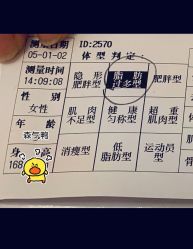 测量日期 ID:2570
05-01-02 体型判定:
测量时间 隐形肥胖型 脂肪过多型 肥胖型
14:09:08
性别 肌肉不足型 健康匀称型 超重肌肉型
女性
年龄 消瘦型 低脂肪型 运动员型
森气鸭
身高
168